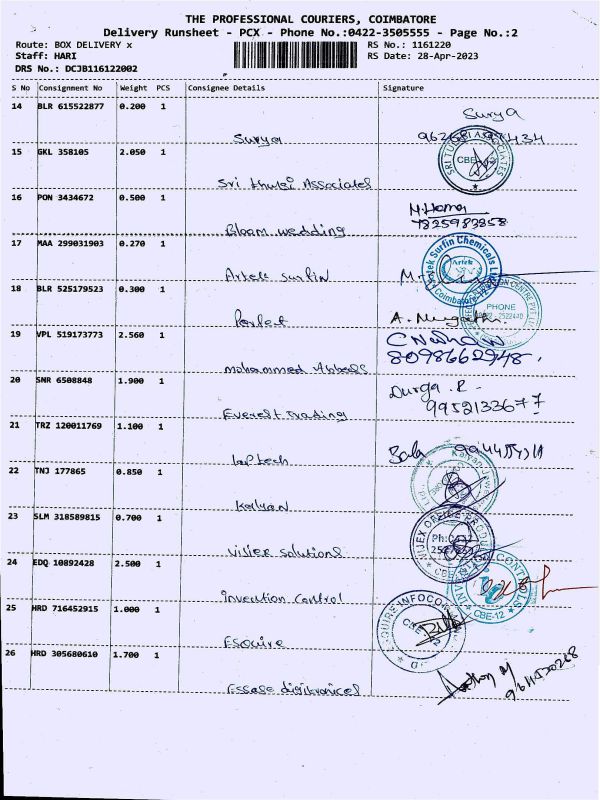 THE PROFESSIONAL COURIERS, COIMBATORE
Delivery Runsheet - PCX - Phone No.:0422-3505555 - Page No.:2
Route: BOX DELIVERY x
RS No.: 1161220
Staff: HARI
RS Date: 28-Apr-2023
DRS No.: DCJB116122002
S No Consignment No Weight PCS Consignee Details Signature
14 BLR 615522877 0.200 1
Surya
Surya
15 GKL 358105 2.050 1
CBE-12
Sri thulsi Associates
16 PON 3434672 0.500 1
Bloom wedding
7825983858
17 MAA 299031903 0.270 1
Artek surfin
Artek Surfin Chemicals
Artek
Coimbatore-12
18 BLR 525179523 0.300 1
PHONE
Perfect
19 VPL 519173773 2.560 1
8098662948
mohammed Abbas
20 SNR 6508848 1.900 1
Durga.R-
9952133677
Everest Trading
21 TRZ 120011769 1.100 1
Bala
laptech
22 TNJ 177865 0.850 1
Kalyan
23 SLM 318589815 0.700 1
Ph:0422
Vijex solutions
24 EDQ 10892428 2.500 1
CBE-12
Invention Control
25 HRD 716452915 1.000 1
Esquire
26 HRD 305680610 1.700 1
Essae digitronics